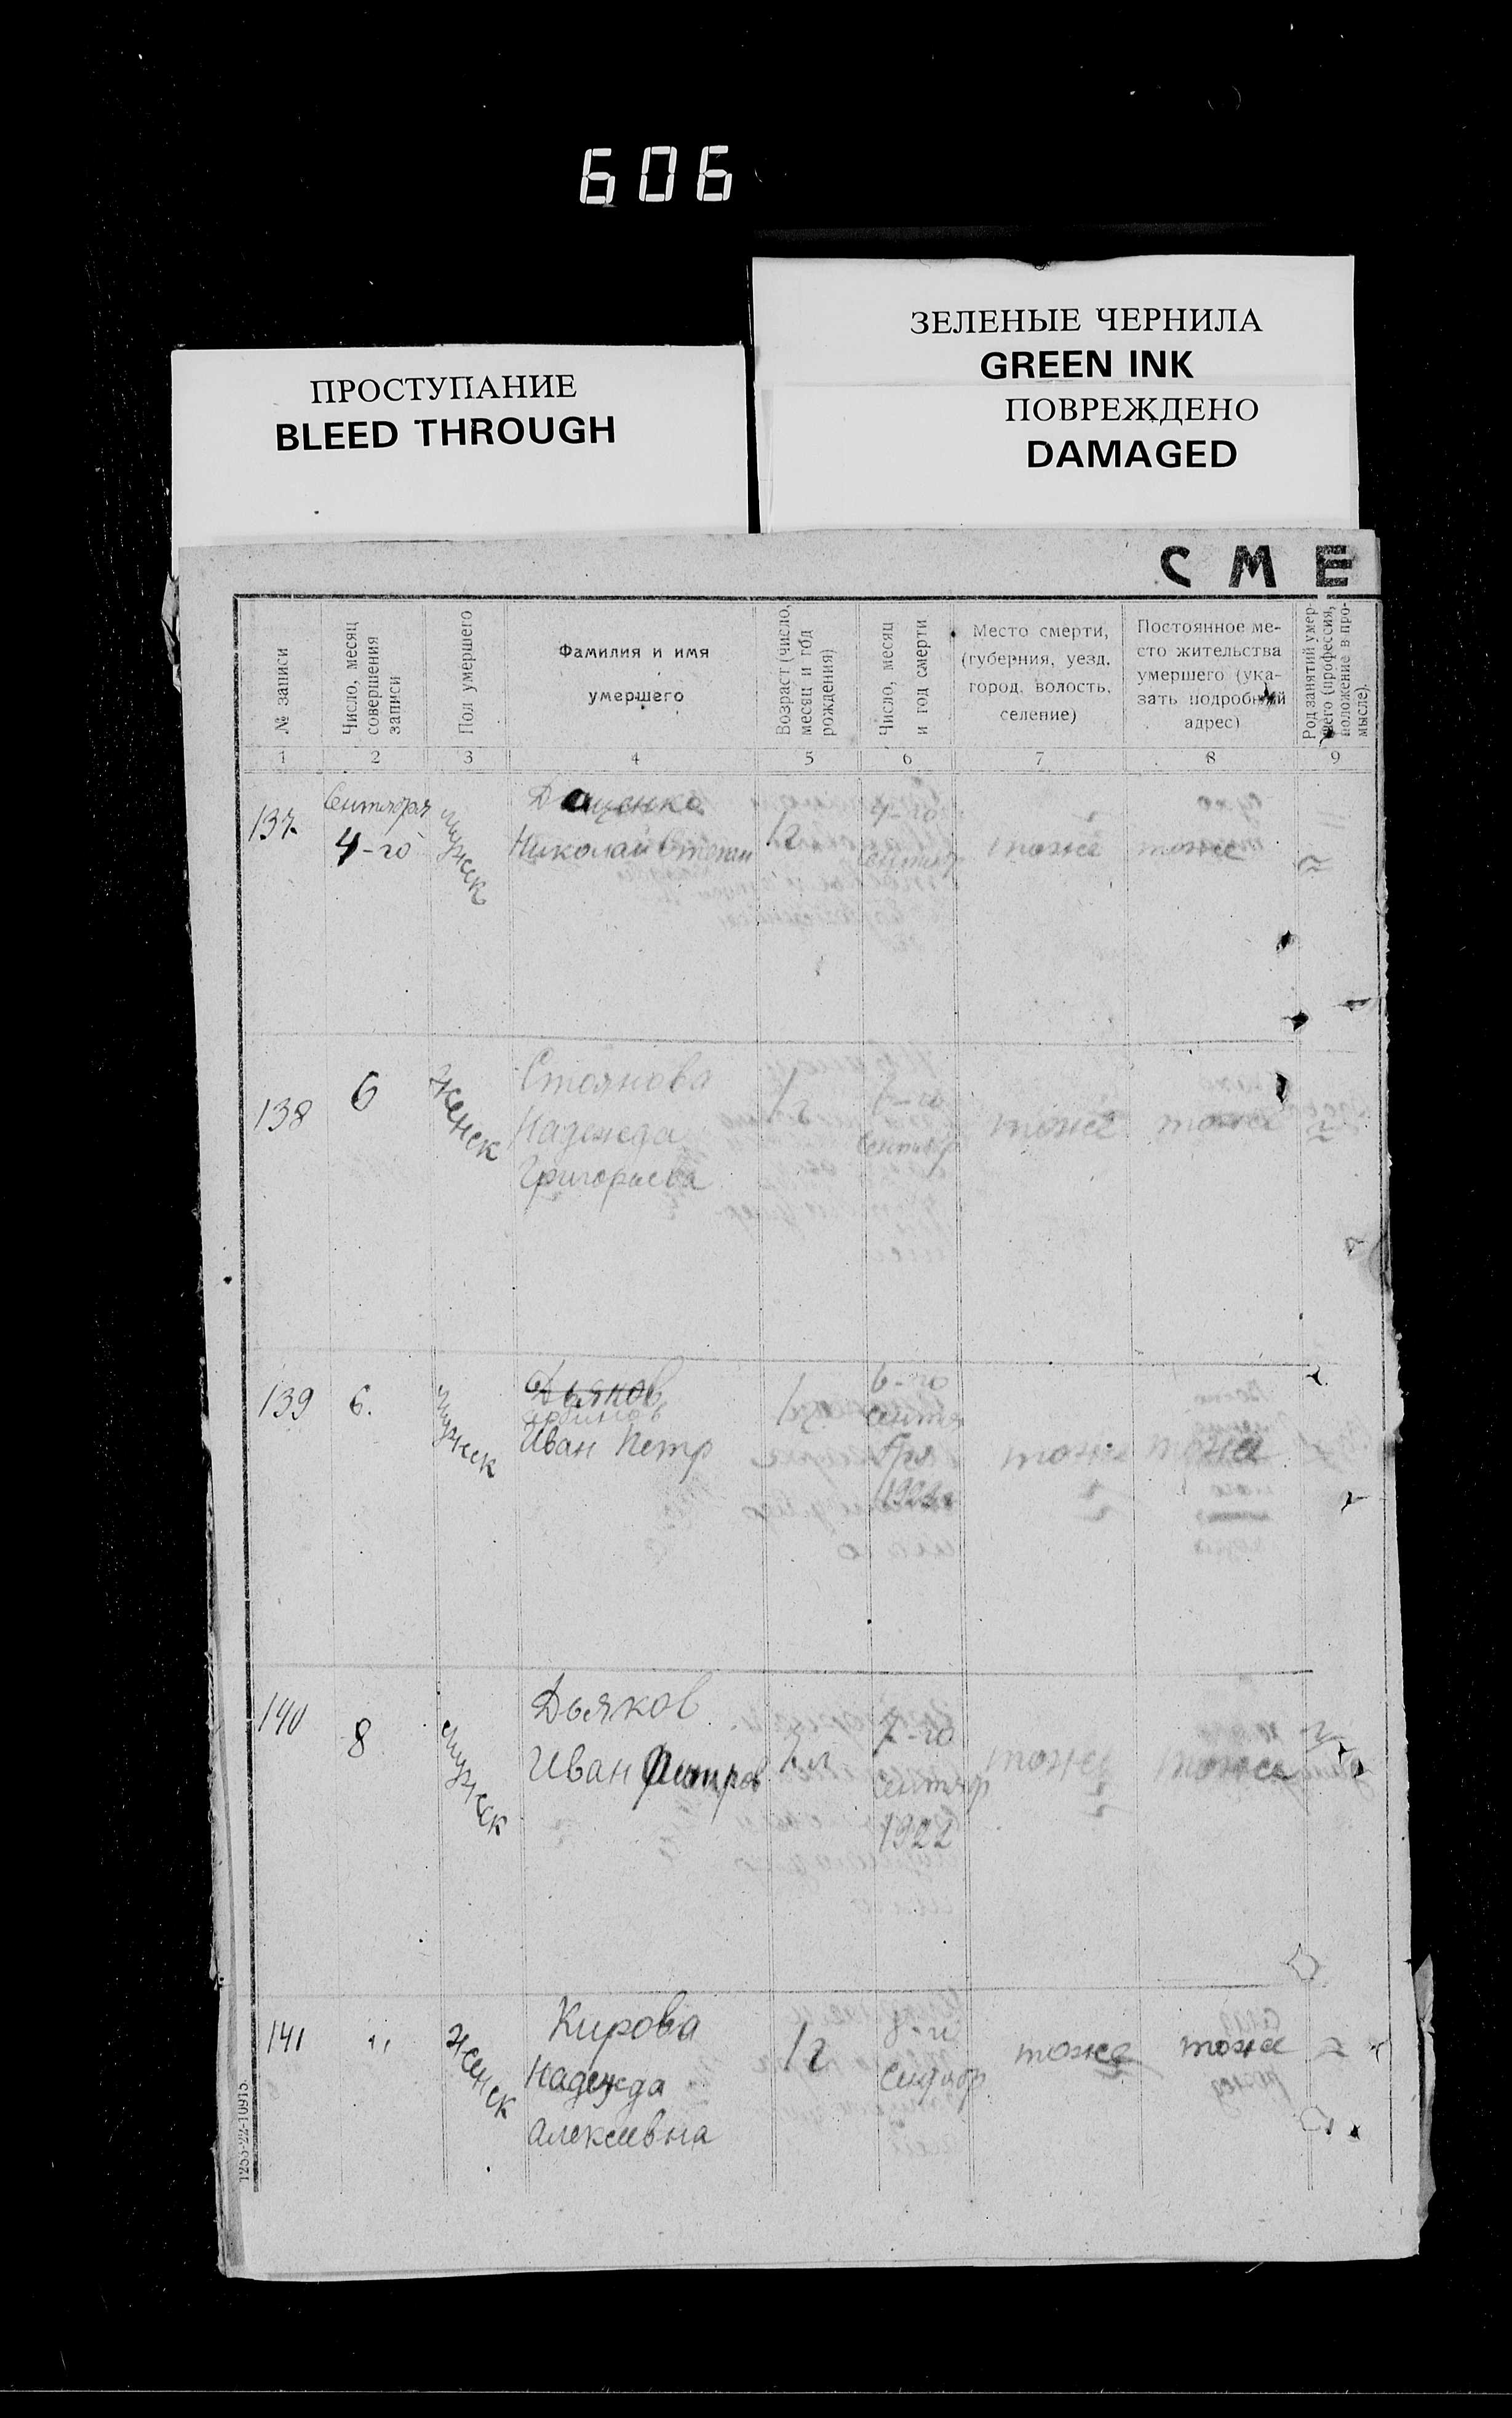 606
ЗЕЛЕНЫЕ ЧЕРНИЛА
GREEN INK
ПРОСТУПАНИЕ
BLEED THROUGH
ПОВРЕЖДЕНО
DAMAGED
С М Е
№ записи
Число, месяц
совершения
записи
Пол умершего
Фамилия и имя
умершего
Возраст (число,
месяц и год
рождения)
Число, месяц
и год смерти
Место смерти,
(губерния, уезд,
город, волость,
селение)
Постоянное ме-
сто жительства
умершего (ука-
зать подробный
адрес)
Род занятий умер-
шего (профессия,
положение в про-
мысле).
1 2 3 4 5 6 7 8 9
137 Сентября
4-го
мужск
Даценко
Николай Степан
1 г
4-го
сентябр
тоже тоже
138 6 женск
Стоянова
Надежда
Григорьева
1 г
7-го
сентябр
тоже тоже
139 6. мужск
Дьяков
Иван Петр
6-го
сентя
бря
1922
тоже тоже
140 8 мужск
Дьяков
Иван Петров
7-го
сентябр
1922
тоже тоже
141 " женск
Кирова
Надежда
Алексеевна
1 г
8-г
сентябр
тоже тоже
1253-22-10915